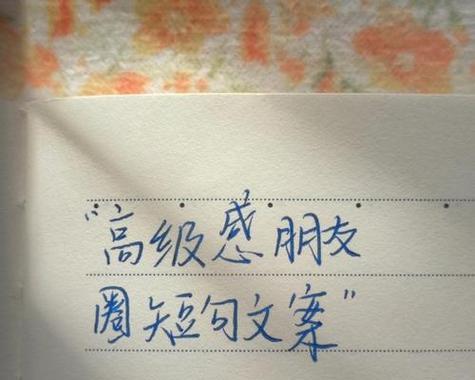 “高级感朋友
圈短句文案”